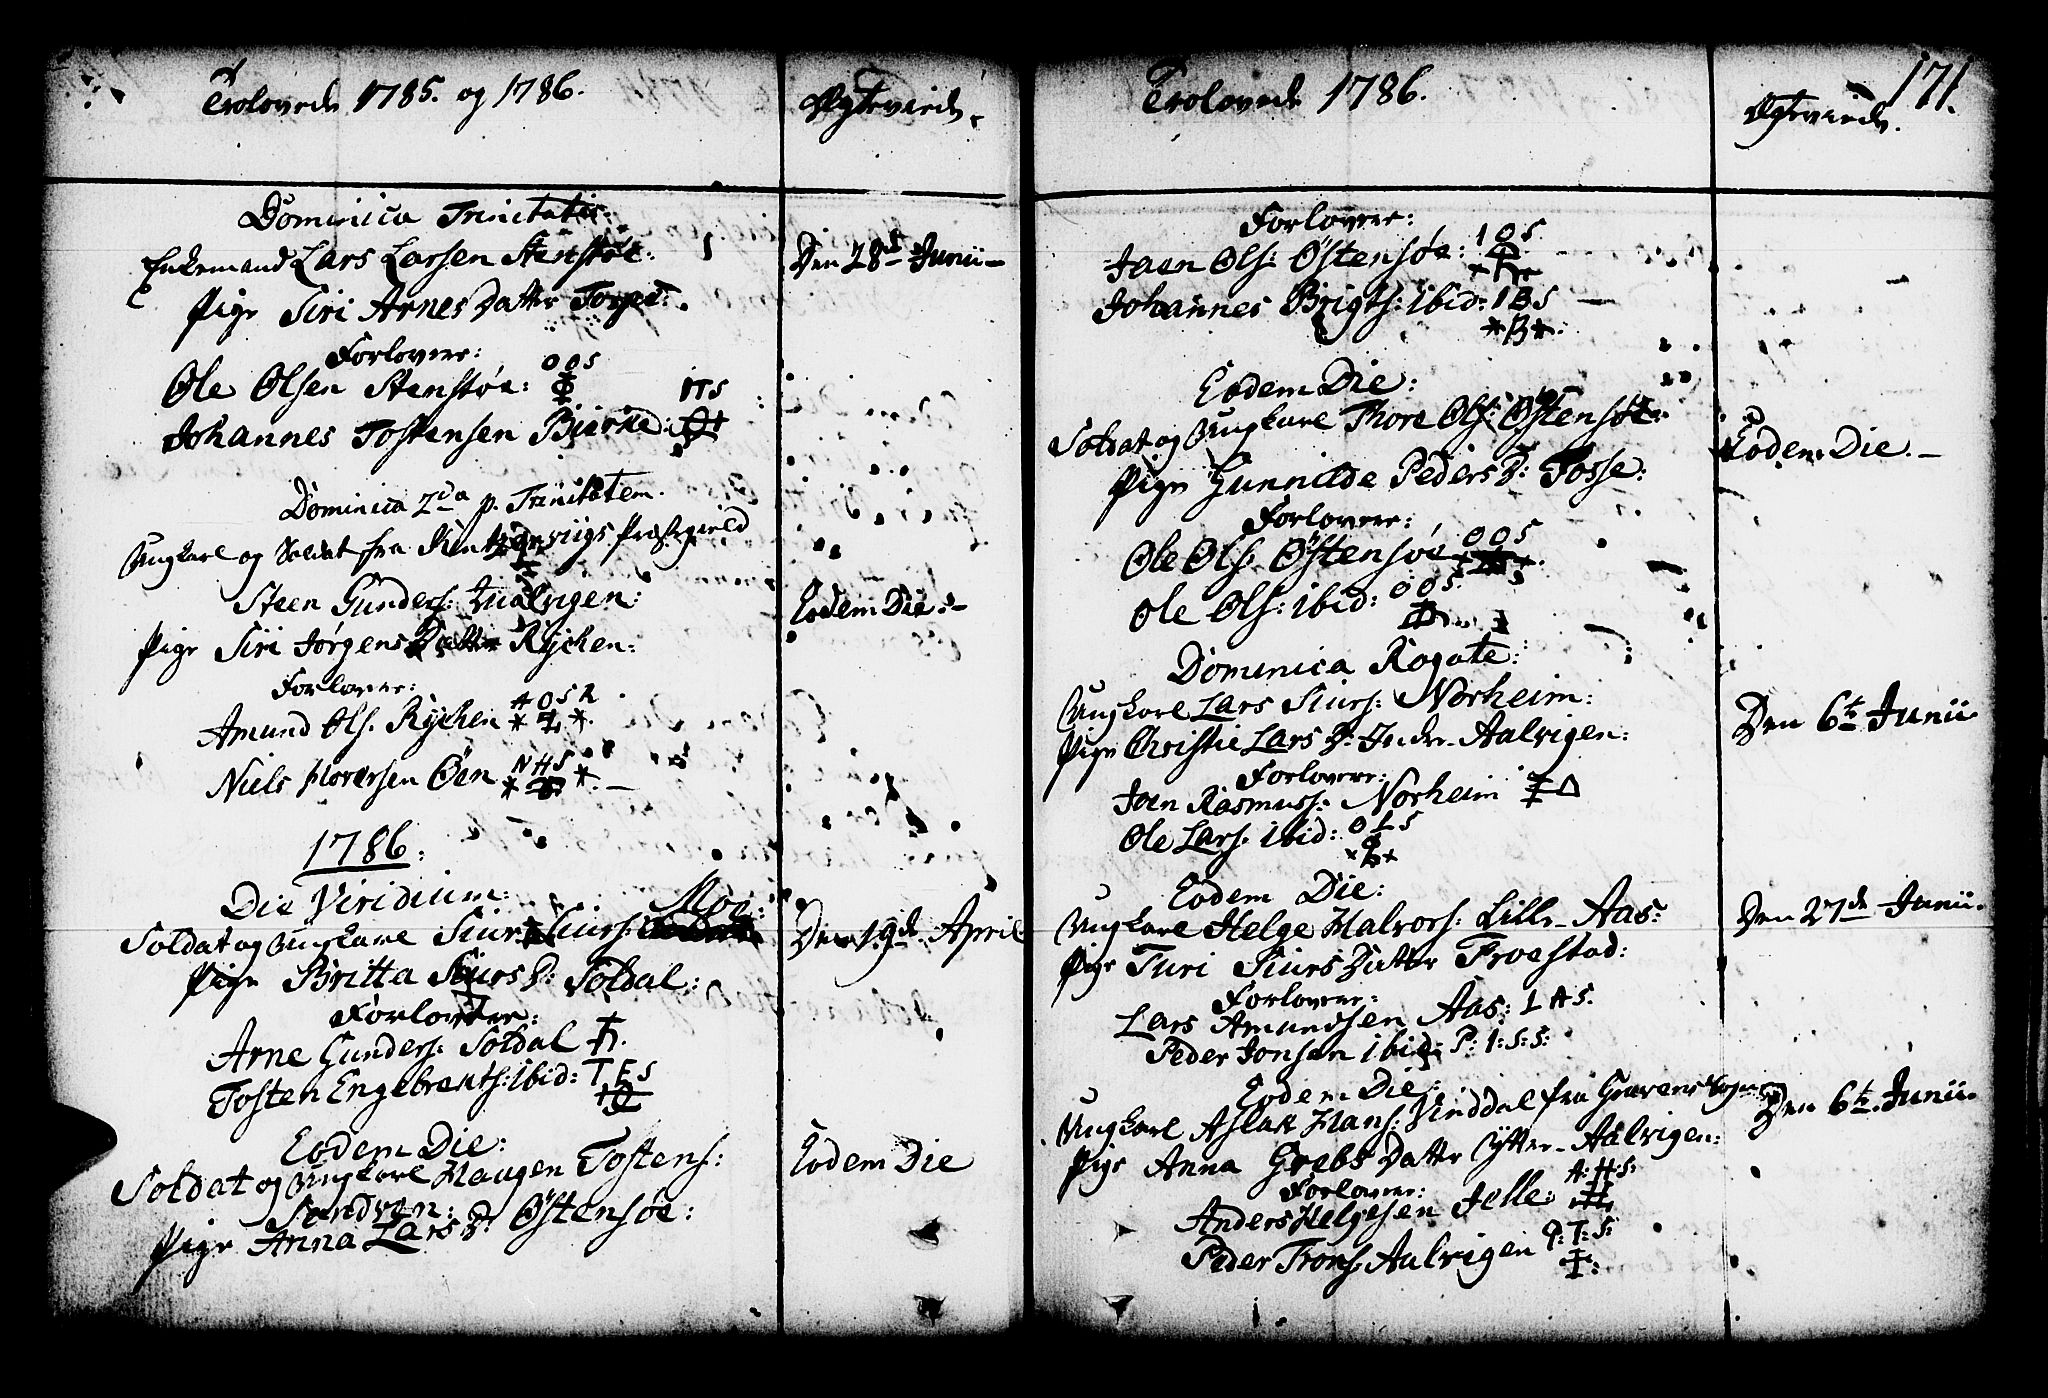 Trolovede 1785. og 1786.
Ægteviede.
Dominica Trinitatis:
Enkemand Lars Larsen Stenstøe:
Den 28de Junii
Pige Siri Arnes Datter Torpe:
Forlovere:
Ole Olsen Stenstøe: OOS
Johannes Tostensen Biørke: ITS
Dominica 2da p. Trinitatem.
Ungkarl og Soldat fra Præstegield
Steen Gunders: Aalvigen:
Eodem Die:
Pige Siri Jørgens Datter Rykken:
Forlovere:
Amund Ols. Rykken AOSR
Niels Hloversen Øen NHS
1786.
Die Viridium:
Soldat og Ungkarl Siur Siurs: Moe:
Den 19de April
Pige Britta Siurs D: Soldal:
Forlovere:
Arne Gunders: Soldal
Tosten Engebrexts: ibid: TES
Eodem Die:
Soldat og Ungkarl Haagen Tostens:
Eodem Die
Sandven:
Pige Anna Lars D: Østensøe:
Trolovede 1786.
Ægteviede.
171.
Forlovere:
Jaen Ols: Østensøe: IOS
Johannes Brigts: ibid: IBS
Eodem Die:
Soldat og Ungkarl Thore Ols: Østensøe:
Eodem Die.
Pige Gunnilde Peders D: Fosse:
Forlovere:
Ole Ols. Østensøe OOS
Ole Ols: ibid: OOS
Dominica Rogate:
Ungkarl Lars Siurs: Norheim:
Den 6te Junii
Pige Christie Lars D: Indre Aalvigen:
Forlovere:
Jaen Rasmuss: Norheim
Ole Lars. ibid: OLS
Eodem Die:
Ungkarl Helge Halvors: Lille Aas:
Den 27de Junii.
Pige Turi Siurs Datter Froestad:
Forlovere:
Lars Amundsen Aas: LAS.
Peder Jonsen ibid: P: I: S: S:
Eodem Die:
Ungkarl Aslak Hans: Vinddal fra Gravens Sogn
Den 6te Junii.
Pige Anna Grebs Datter Ytter Aalvigen:
Forlovere:
Anders Helgesen Jelle: A: H: S:
Peder Trons. Aalvigen P: T: S: